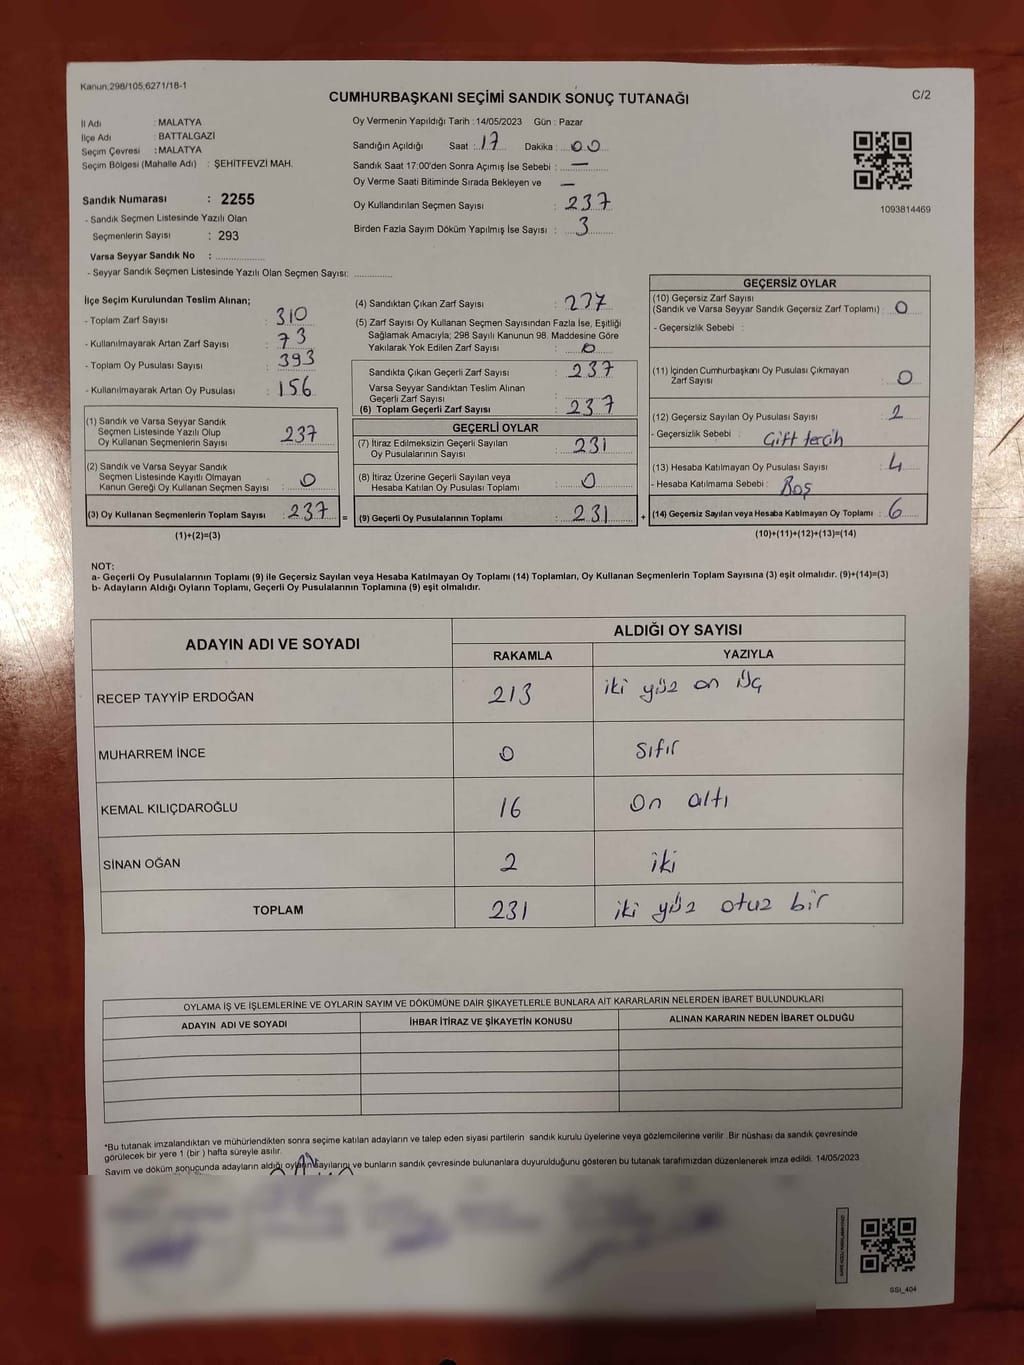 Kanun;298/105,6271/18-1
CUMHURBAŞKANI SEÇİMİ SANDIK SONUÇ TUTANAĞI
C/2
İl Adı : MALATYA
İlçe Adı : BATTALGAZİ
Seçim Çevresi : MALATYA
Seçim Bölgesi (Mahalle Adı) : ŞEHİTFEVZİ MAH.
Sandık Numarası : 2255
- Sandık Seçmen Listesinde Yazılı Olan
Seçmenlerin Sayısı : 293
Varsa Seyyar Sandık No :
- Seyyar Sandık Seçmen Listesinde Yazılı Olan Seçmen Sayısı:
Oy Vermenin Yapıldığı Tarih : 14/05/2023 Gün : Pazar
Sandığın Açıldığı Saat : 17 Dakika : 00
Sandık Saat 17:00'den Sonra Açımış İse Sebebi : —
Oy Verme Saati Bitiminde Sırada Bekleyen ve —
Oy Kullandırılan Seçmen Sayısı : 237
Birden Fazla Sayım Döküm Yapılmış İse Sayısı : 3
1093814469
İlçe Seçim Kurulundan Teslim Alınan;
- Toplam Zarf Sayısı : 310
- Kullanılmayarak Artan Zarf Sayısı : 73
- Toplam Oy Pusulası Sayısı : 393
- Kullanılmayarak Artan Oy Pusulası : 156
(1) Sandık ve Varsa Seyyar Sandık
Seçmen Listesinde Yazılı Olup
Oy Kullanan Seçmenlerin Sayısı : 237
(2) Sandık ve Varsa Seyyar Sandık
Seçmen Listesinde Kayıtlı Olmayan
Kanun Gereği Oy Kullanan Seçmen Sayısı : 0
(3) Oy Kullanan Seçmenlerin Toplam Sayısı : 237 =
(1)+(2)=(3)
(4) Sandıktan Çıkan Zarf Sayısı : 237
(5) Zarf Sayısı Oy Kullanan Seçmen Sayısından Fazla İse, Eşitliği
Sağlamak Amacıyla; 298 Sayılı Kanunun 98. Maddesine Göre
Yakılarak Yok Edilen Zarf Sayısı : 0
Sandıkta Çıkan Geçerli Zarf Sayısı : 237
Varsa Seyyar Sandıktan Teslim Alınan
Geçerli Zarf Sayısı :
(6) Toplam Geçerli Zarf Sayısı : 237
GEÇERLİ OYLAR
(7) İtiraz Edilmeksizin Geçerli Sayılan
Oy Pusulalarının Sayısı : 231
(8) İtiraz Üzerine Geçerli Sayılan veya
Hesaba Katılan Oy Pusulası Toplamı : 0
(9) Geçerli Oy Pusulalarının Toplamı : 231 +
GEÇERSİZ OYLAR
(10) Geçersiz Zarf Sayısı
(Sandık ve Varsa Seyyar Sandık Geçersiz Zarf Toplamı) : 0
- Geçersizlik Sebebi :
(11) İçinden Cumhurbaşkanı Oy Pusulası Çıkmayan
Zarf Sayısı : 0
(12) Geçersiz Sayılan Oy Pusulası Sayısı : 2
- Geçersizlik Sebebi : Çift tercih
(13) Hesaba Katılmayan Oy Pusulası Sayısı : 4
- Hesaba Katılmama Sebebi : Boş
(14) Geçersiz Sayılan veya Hesaba Katılmayan Oy Toplamı : 6
(10)+(11)+(12)+(13)=(14)
NOT:
a- Geçerli Oy Pusulalarının Toplamı (9) ile Geçersiz Sayılan veya Hesaba Katılmayan Oy Toplamı (14) Toplamları, Oy Kullanan Seçmenlerin Toplam Sayısına (3) eşit olmalıdır. (9)+(14)=(3)
b- Adayların Aldığı Oyların Toplamı, Geçerli Oy Pusulalarının Toplamına (9) eşit olmalıdır.
ADAYIN ADI VE SOYADI ALDIĞI OY SAYISI
RAKAMLA YAZIYLA
RECEP TAYYİP ERDOĞAN 213 iki yüz on üç
MUHARREM İNCE 0 sıfır
KEMAL KILIÇDAROĞLU 16 on altı
SİNAN OĞAN 2 iki
TOPLAM 231 iki yüz otuz bir
OYLAMA İŞ VE İŞLEMLERİNE VE OYLARIN SAYIM VE DÖKÜMÜNE DAİR ŞİKAYETLERLE BUNLARA AİT KARARLARIN NELERDEN İBARET BULUNDUKLARI
ADAYIN ADI VE SOYADI İHBAR İTİRAZ VE ŞİKAYETİN KONUSU ALINAN KARARIN NEDEN İBARET OLDUĞU
*Bu tutanak imzalandıktan ve mühürlendikten sonra seçime katılan adayların ve talep eden siyasi partilerin sandık kurulu üyelerine veya gözlemcilerine verilir. Bir nüshası da sandık çevresinde
görülecek bir yere 1 (bir ) hafta süreyle asılır.
Sayım ve döküm sonucunda adayların aldığı oyların sayılarını ve bunların sandık çevresinde bulunanlara duyurulduğunu gösteren bu tutanak tarafımızdan düzenlenerek imza edildi. 14/05/2023
SSI_404